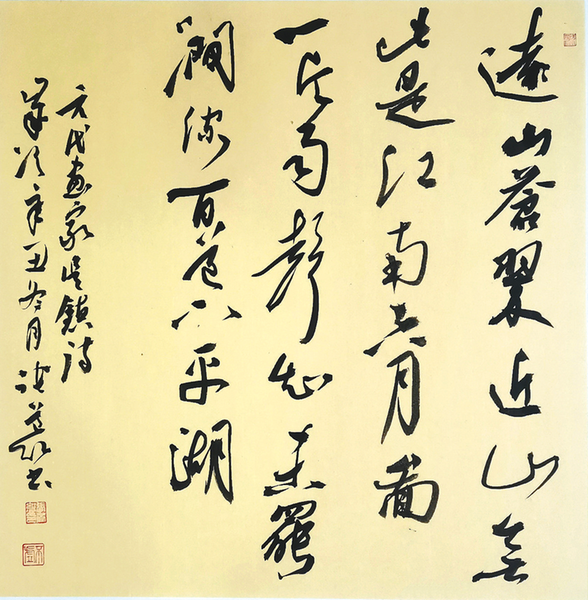 遠山蒼翠近山無
此是江南六月圖
一片雨聲知未罷
澗流百道下平湖
元代畫家吳鎮詩
歲次辛丑冬月書